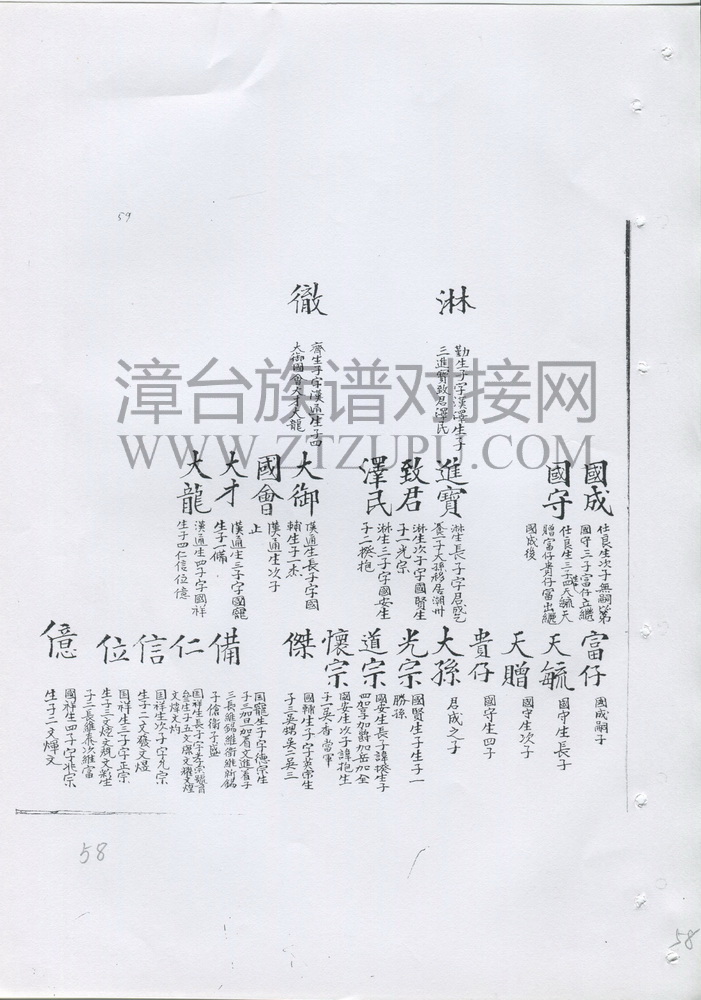 59
淋
勤生子字漢澤生子
三進寶致君澤民
徹
齊生子字漢通生子四
大御國會大才大龍
漳台族谱对接网
WWW.ZTZUPU.COM
國成
仕良生次子無嗣以第
國守三子富仔立繼
國守
仕良生三子四天毓天
贈富仔貴仔富出繼
國成後
進寶
淋生長子字君成乞
養一子大孫移居潮州
致君
淋生次子字國賢生
子一光宗
澤民
淋生三子字國安生
子二揆抱
大御
漢通生長子字國
輔生子一杰
國會
漢通生次子
止
大才
漢通生三子字國寵
生子一備
大龍
漢通生四子字國祥
生子四仁信位億
富仔
國成嗣子
天毓
國守生長子
天贈
國守生次子
貴仔
國守生四子
大孫
君成之子
光宗
國賢生子生子一
勝孫
道宗
國安生長子諱揆生子
四加亨加爵加岳加全
懷宗
國安生次子諱抱生
子一吳香當軍
傑
國輔生子字英宗生
子三英瑞吳二吳三
備
國寵生子字德宗生
子三加旦加看文進看子
三長維銘維衛維新銘
子愴衛子盛
仁
文煒文灼
信
國祥生次子字允宗
生子二文發文煜
位
國祥生三子字正宗
生子三文煌文炳文彩生
子二長維泰次維富
億
國祥生四子字兆宗
生子二文燁文
58
58